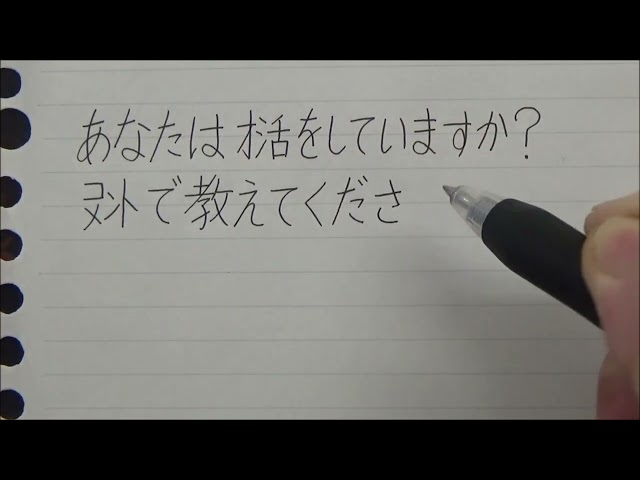 あなたはオ活をしていますか?
コメントで教えてくださ